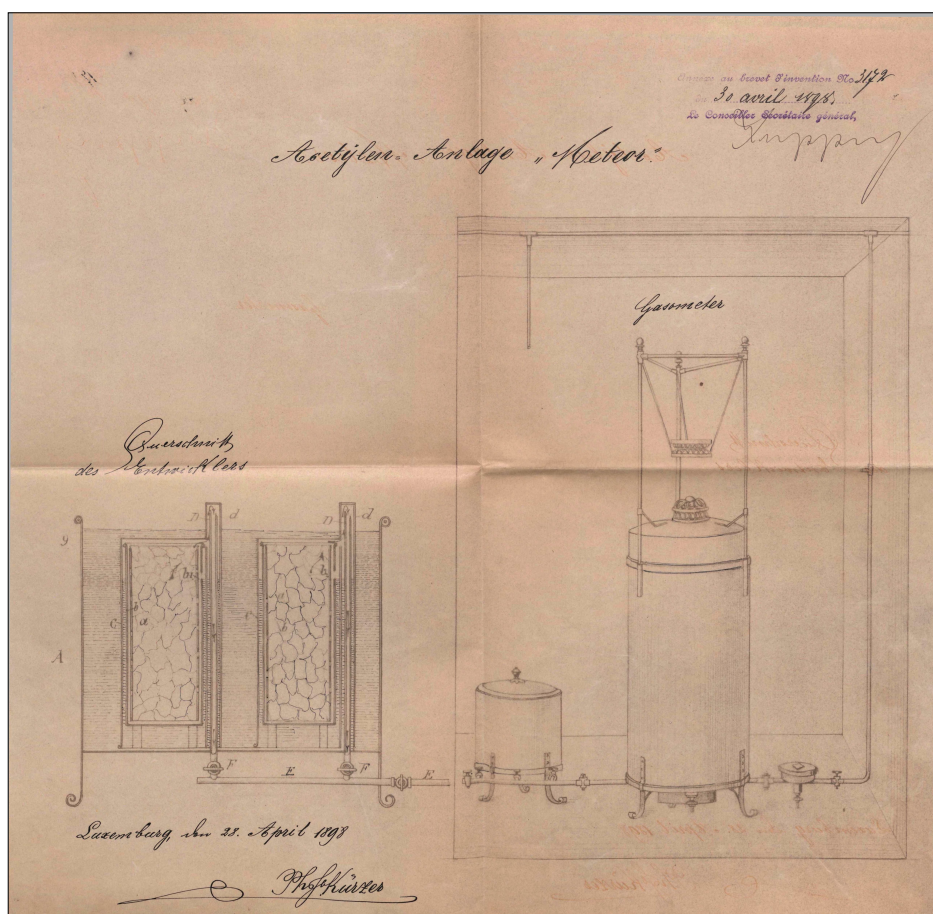 Annexe au brevet d'invention No 3172
du 30 avril 1898.
Le Conseiller Secrétaire général,
Acetÿlen-Anlage „Meteor."
Gasometer
Querschnitt
des Entwicklers
D d D d
g
A
b b1 h
C a c b
F F
E E
Luxemburg, den 28. April 1898
Kürzer